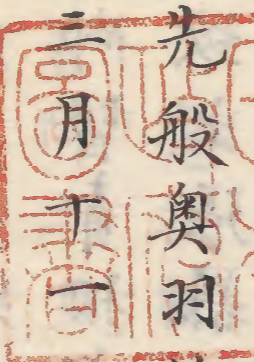 先般奥羽
三月十一